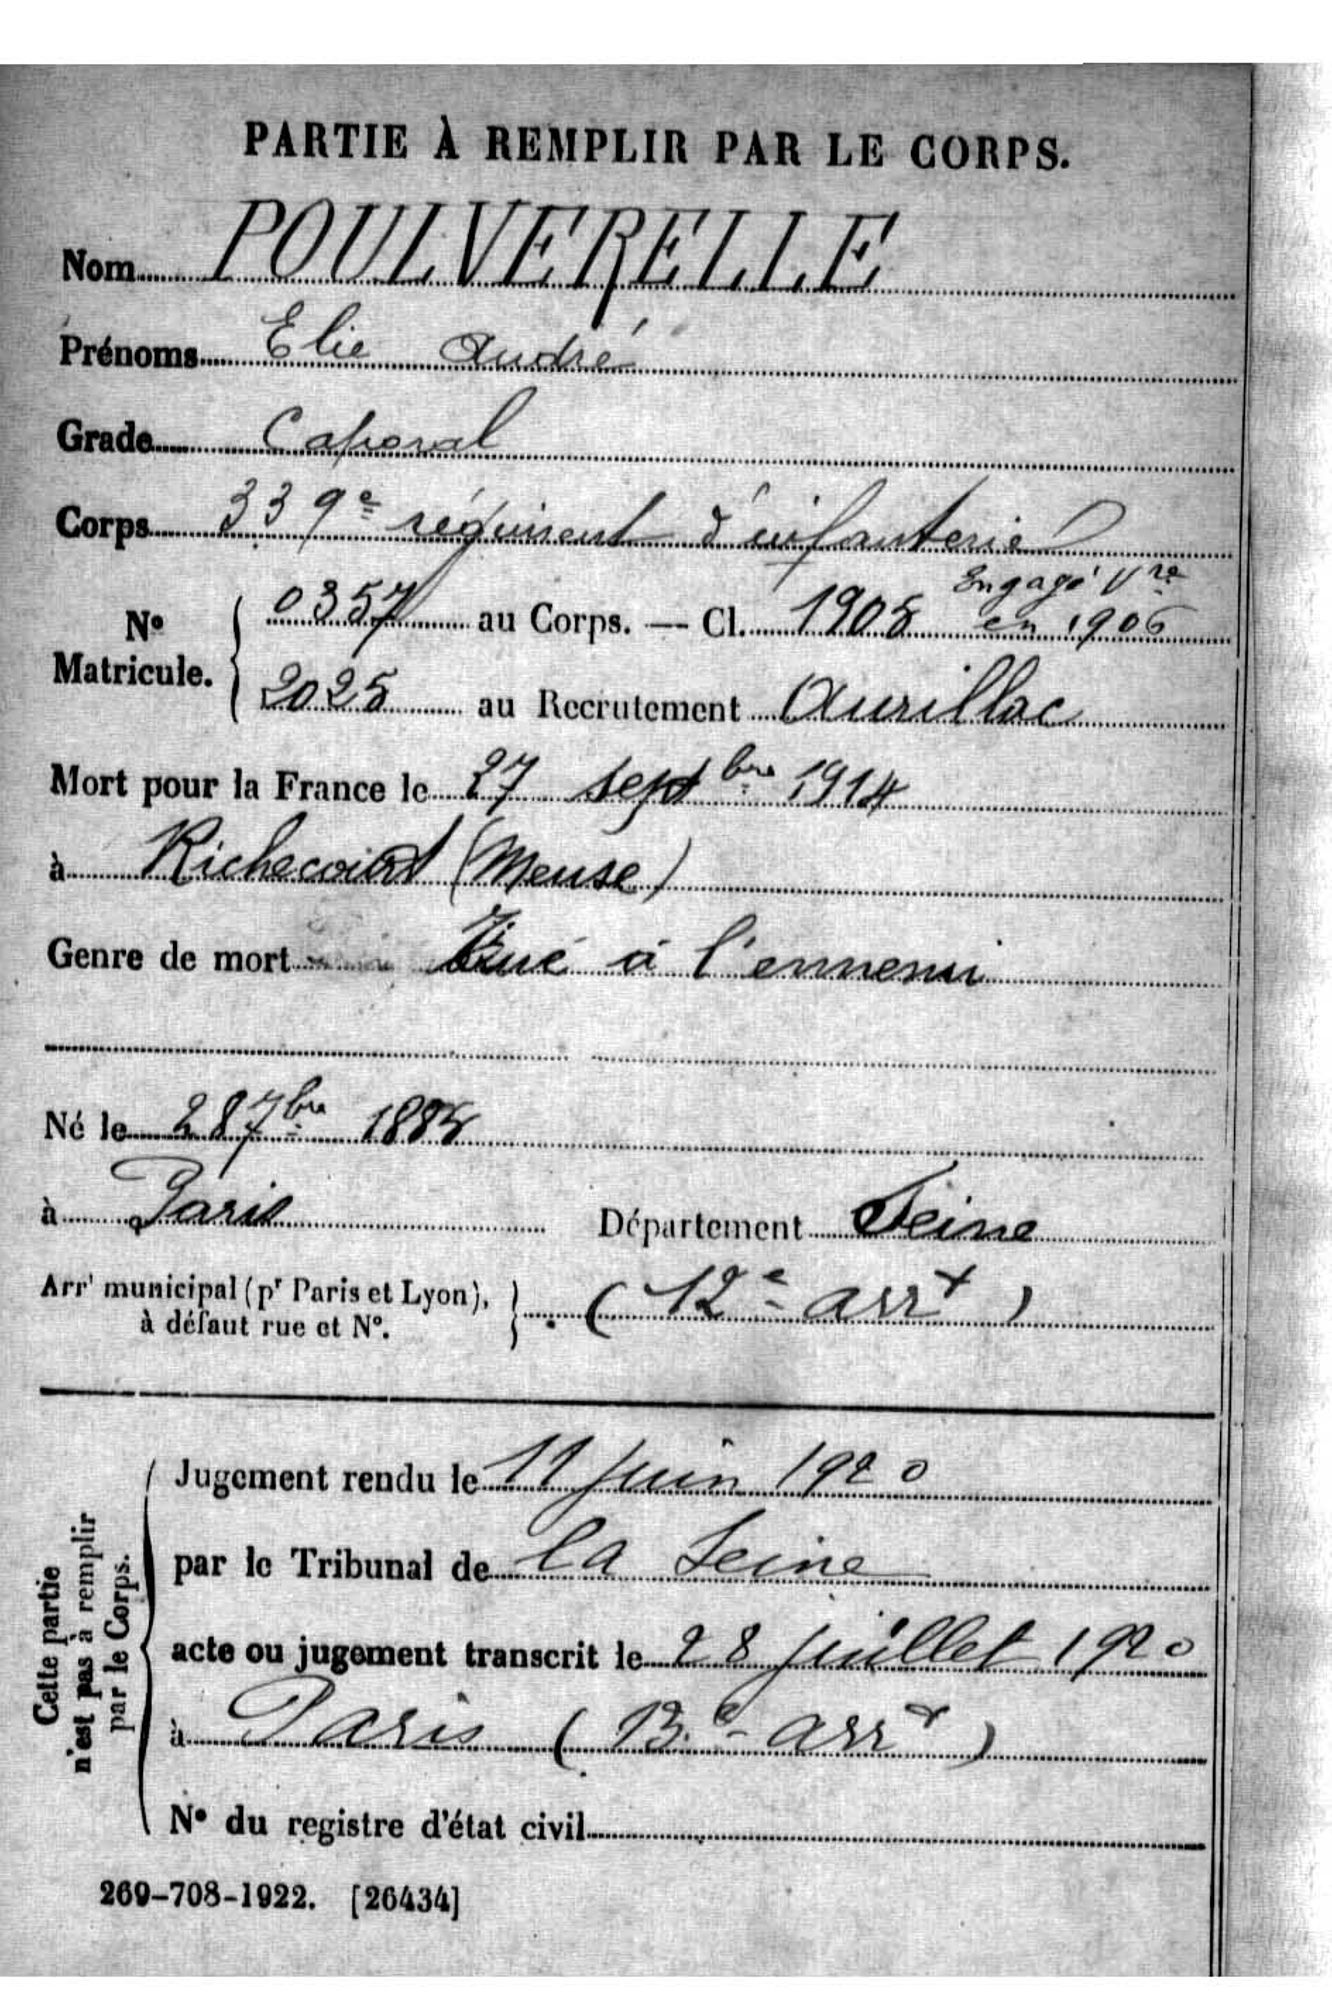 PARTIE À REMPLIR PAR LE CORPS.
Nom POULVERELLE
Prénoms Elie André
Grade Caporal
Corps 339e régiment d'infanterie
Engagé Vre
0357 au Corps. — Cl. 1908 en 1906
No Matricule.
2028 au Recrutement Aurillac
Mort pour la France le 27 septbre 1914
à Richecourt (Meuse)
Genre de mort Tué à l'ennemi
Né le 28 7bre 1888
à Paris Département Seine
Arrt municipal (pr Paris et Lyon), à défaut rue et No. (12e arrt)
Cette partie n'est pas à remplir par le Corps.
Jugement rendu le 11 Juin 1920
par le Tribunal de la Seine
acte ou jugement transcrit le 28 juillet 1920
à Paris (13e arrt)
No du registre d'état civil
269-708-1922. [26434]